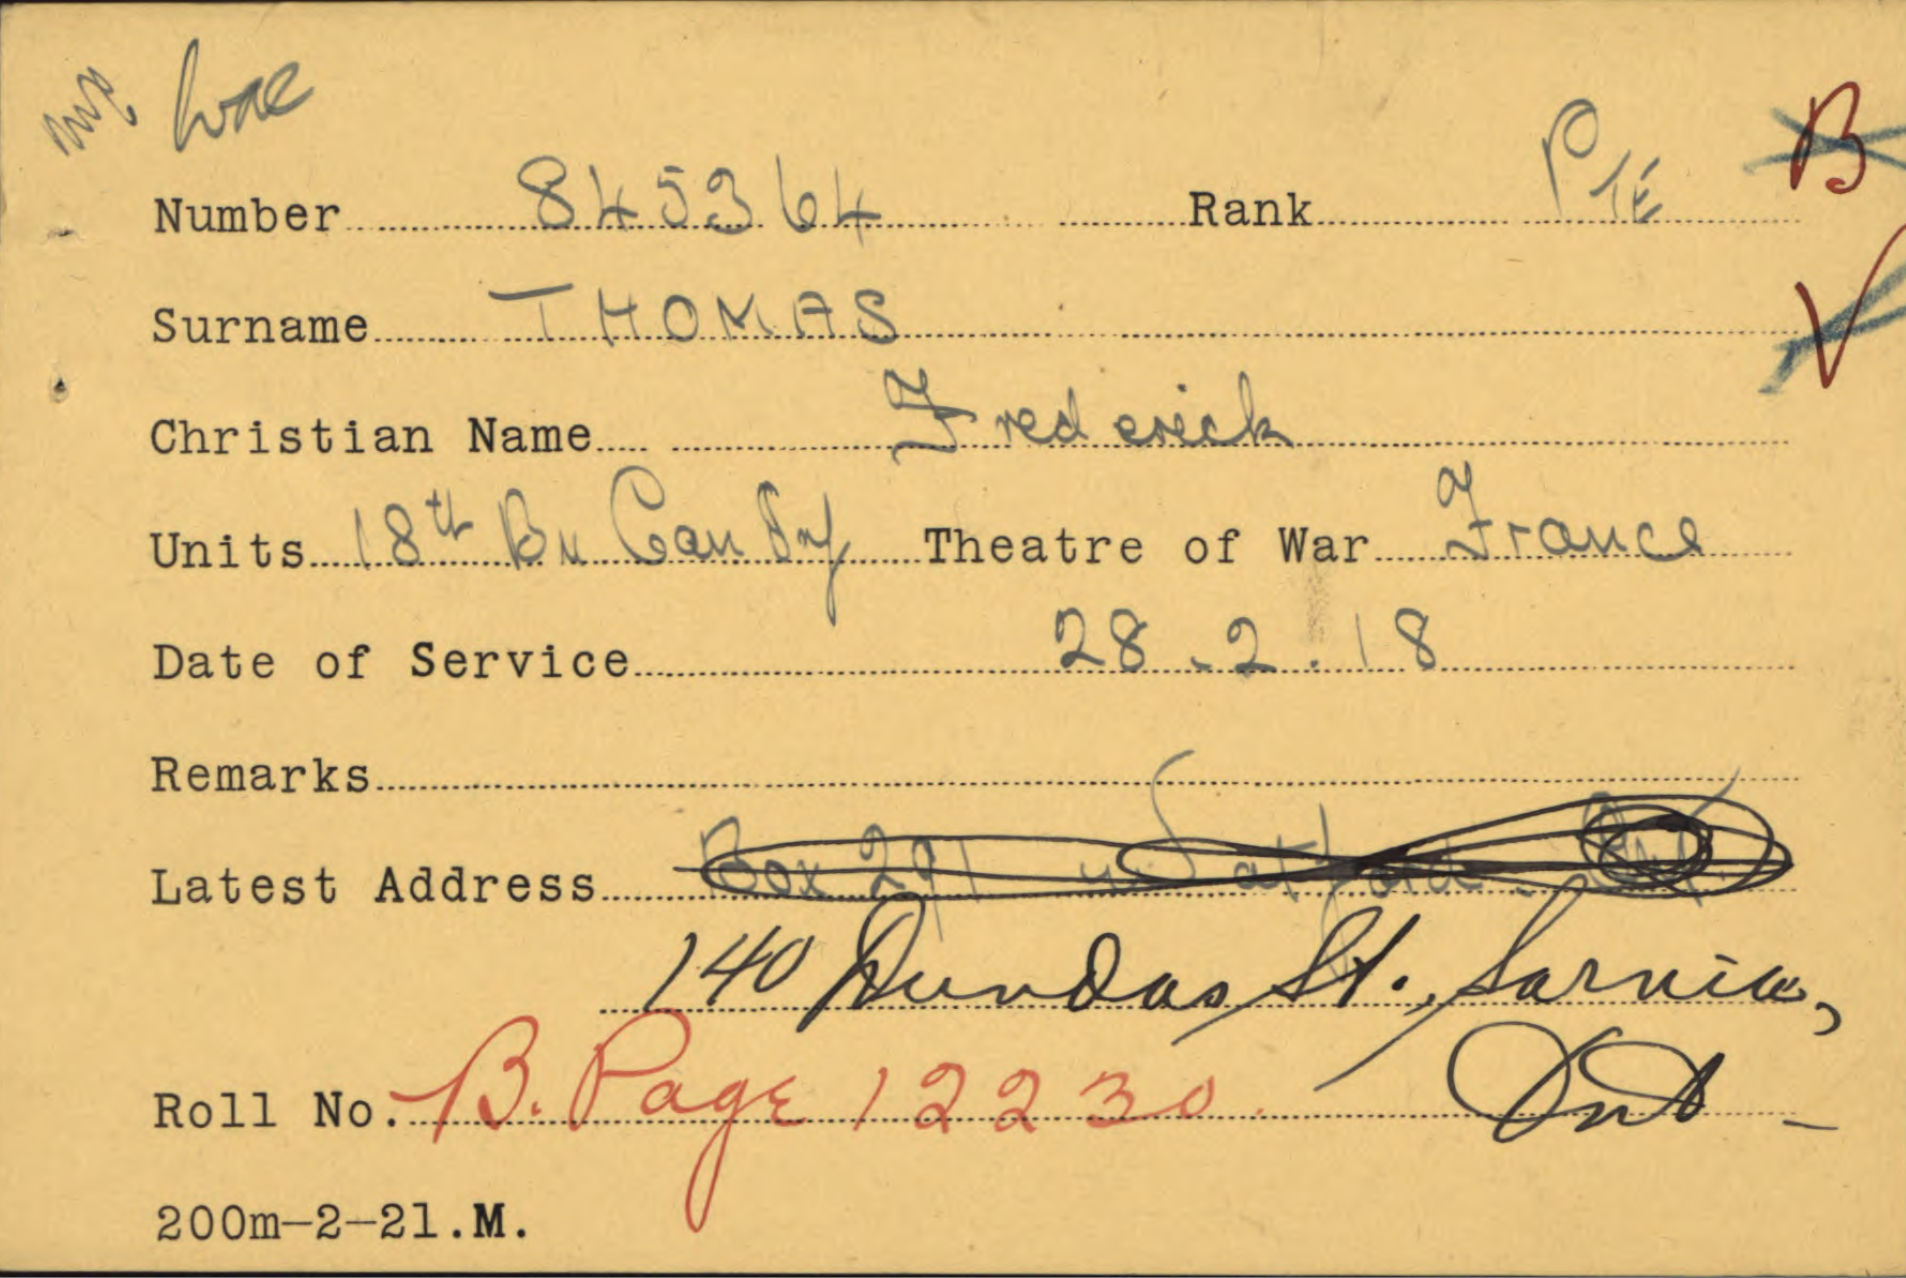 Number 845364 Rank PTE B
Surname THOMAS V
Christian Name Frederick
Units 18th Bn Can Inf Theatre of War France
Date of Service 28.2.18
Remarks
Latest Address Box 291 Watford. Ont
140 Dundas St., Sarnia,
Ont -
Roll No. B. Page 12230.
200m-2-21.M.